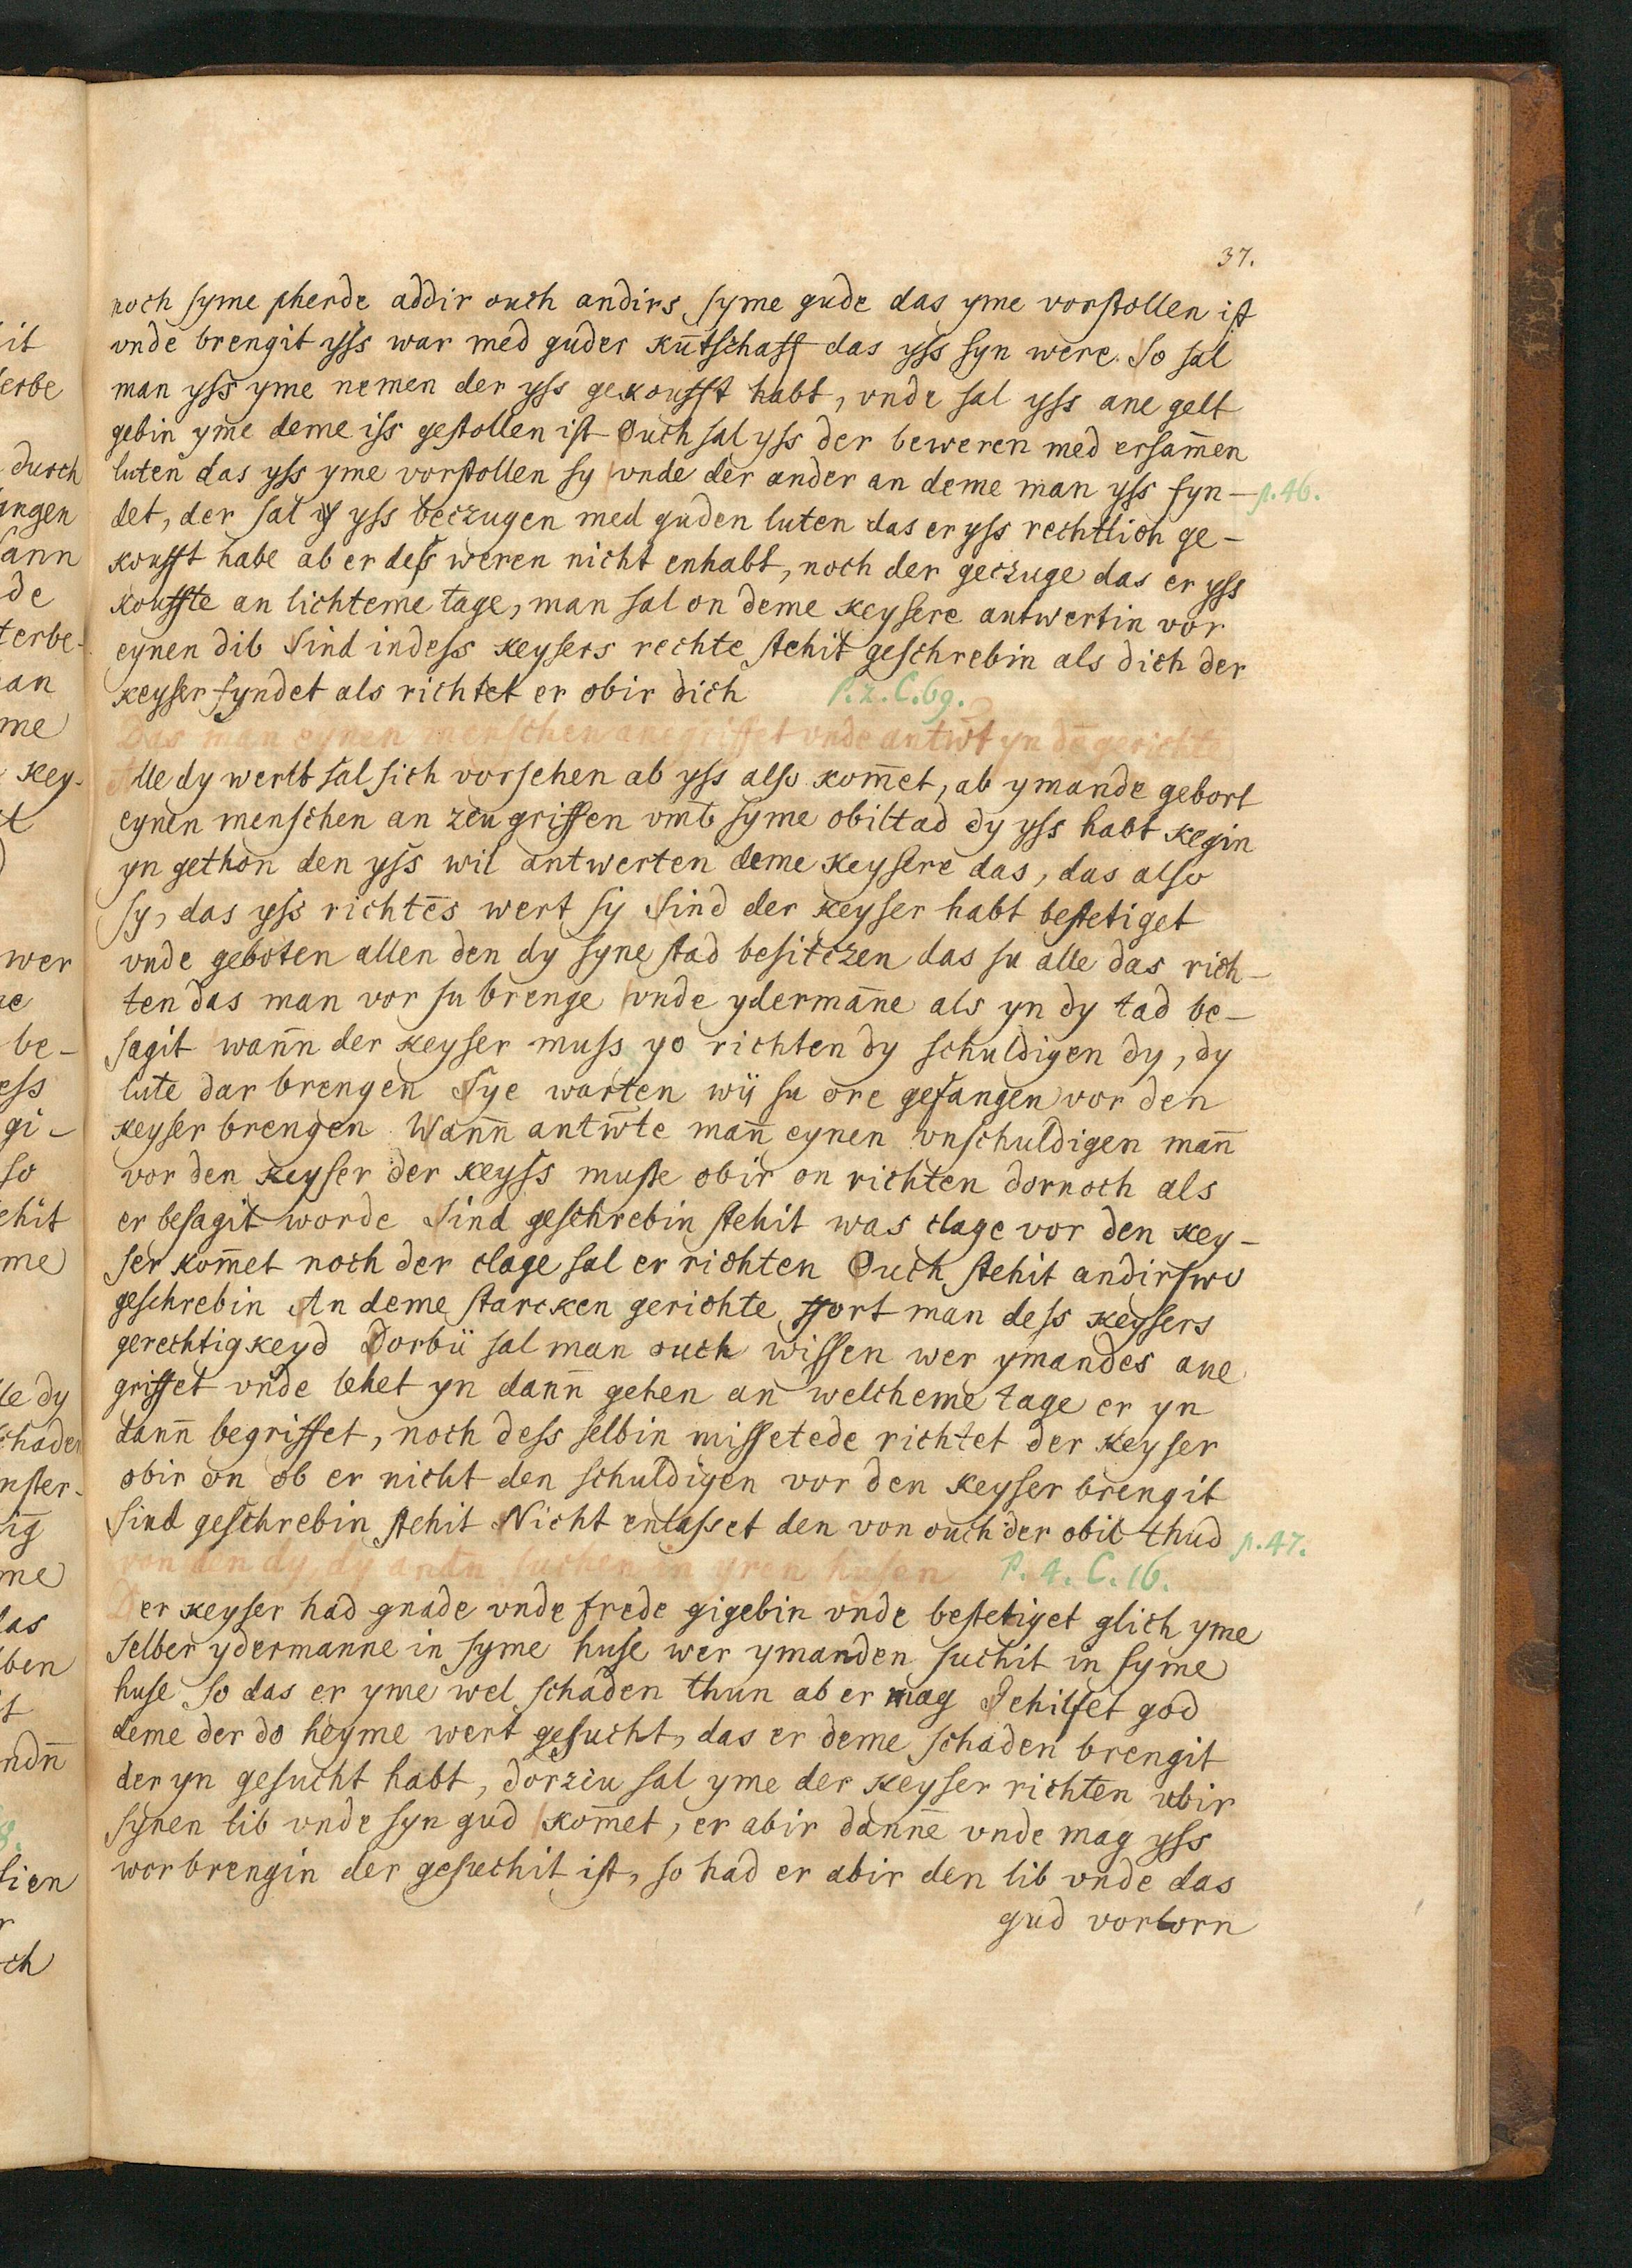 37.
noch syme pherde addir ouch andirs syme gude das yme vorstollen ist
vnde brengit yss war med guder kūtschaff das yss syn were. So sal
man yss yme nemen der yss gekoufft habt, vnde sal yss ane gelt
gebin ym̄e deme iss gestollen ist Ouch sal yss der beweren med ersam̄en
luten das yss yme vorstollen sy vnde der ander an deme man yss fyn- p.46.
det, der sal yss beczugen med guden luten das er yss rechtlich ge-
koufft habe ab er dess weren nicht enhabt, noch der geczuge das er yss
kouffte an lichteme tage, man sal on deme keysere antwertin vor
eynen dib Sind indess keysers rechte stehit geschrebin als dich der
keyser fyndet als richtet er obir dich P. 2. C. 69.
Das man eynen menschen ane griffet vnde antwt yn dē gerichte
Alle dy werlt sal sich vorsehen ab yss also kom̄et, ab ymande gebort
eynen menschen an zcu griffen vm̄b syme obiltad dy yss habt kegin
yn gethon den yss wil antwerten deme keysere das, das also
sy, das yss richtēs wert sy Sind der keyser habt bestetiget
vnde geboten allen den dy syne stad besitczen das su alle das rich-
ten das man vor su brenge vnde ydermāne als yn dy tad be-
sagit wan̄n der keyser muss yo richten dy schuldigen dy, dy
lute dar brengen Sye warten wÿ su ore gefangen vor den
keyser brengen Wan̄n antw̄te man̄ eynen vnschuldigen man̄
vor den keyser der keyss muste obir on richten dornoch als
er besagit worde Sind geschrebin stehit was clage vor den key-
ser kom̄et noch der clage sal er richten Ouch stehit andirswo
geschrebin An deme starcken gerichte sport man dess keysers
gerechtigkeyd Dorbü sal man ouch wissen wer ymandes ane
griffet vnde lehet yn dan̄n gehen an welcheme tage er yn
dan̄n begriffet, noch dess selbin missetede richtet der keyser
obir on ob er nicht den schuldigen vor den keyser brengit
Sind geschrebin stehit Nicht enlasset den von ouch der obil thud p.47.
von den dy, dy andn̄ suchen in yren husen P. 4. C. 16.
Der keyser had gnade vnde frede gigebin vnde bestetiget glich yme
selber ydermanne in syme huse wer ymanden suchit in syme
huse so das er yme wel schaden thun ab er mag Gehilfet god
deme der do heyme wert gesucht, das er deme schaden brengit
der yn gesucht habt, dorzcu sal yme der keyser richten vbir
synen lib vnde syn gud kom̄et, er abir dan̄ne vnde mag yss
wor brengin der gesuchit ist, so had er abir den lib vnde das
gud vorlorn